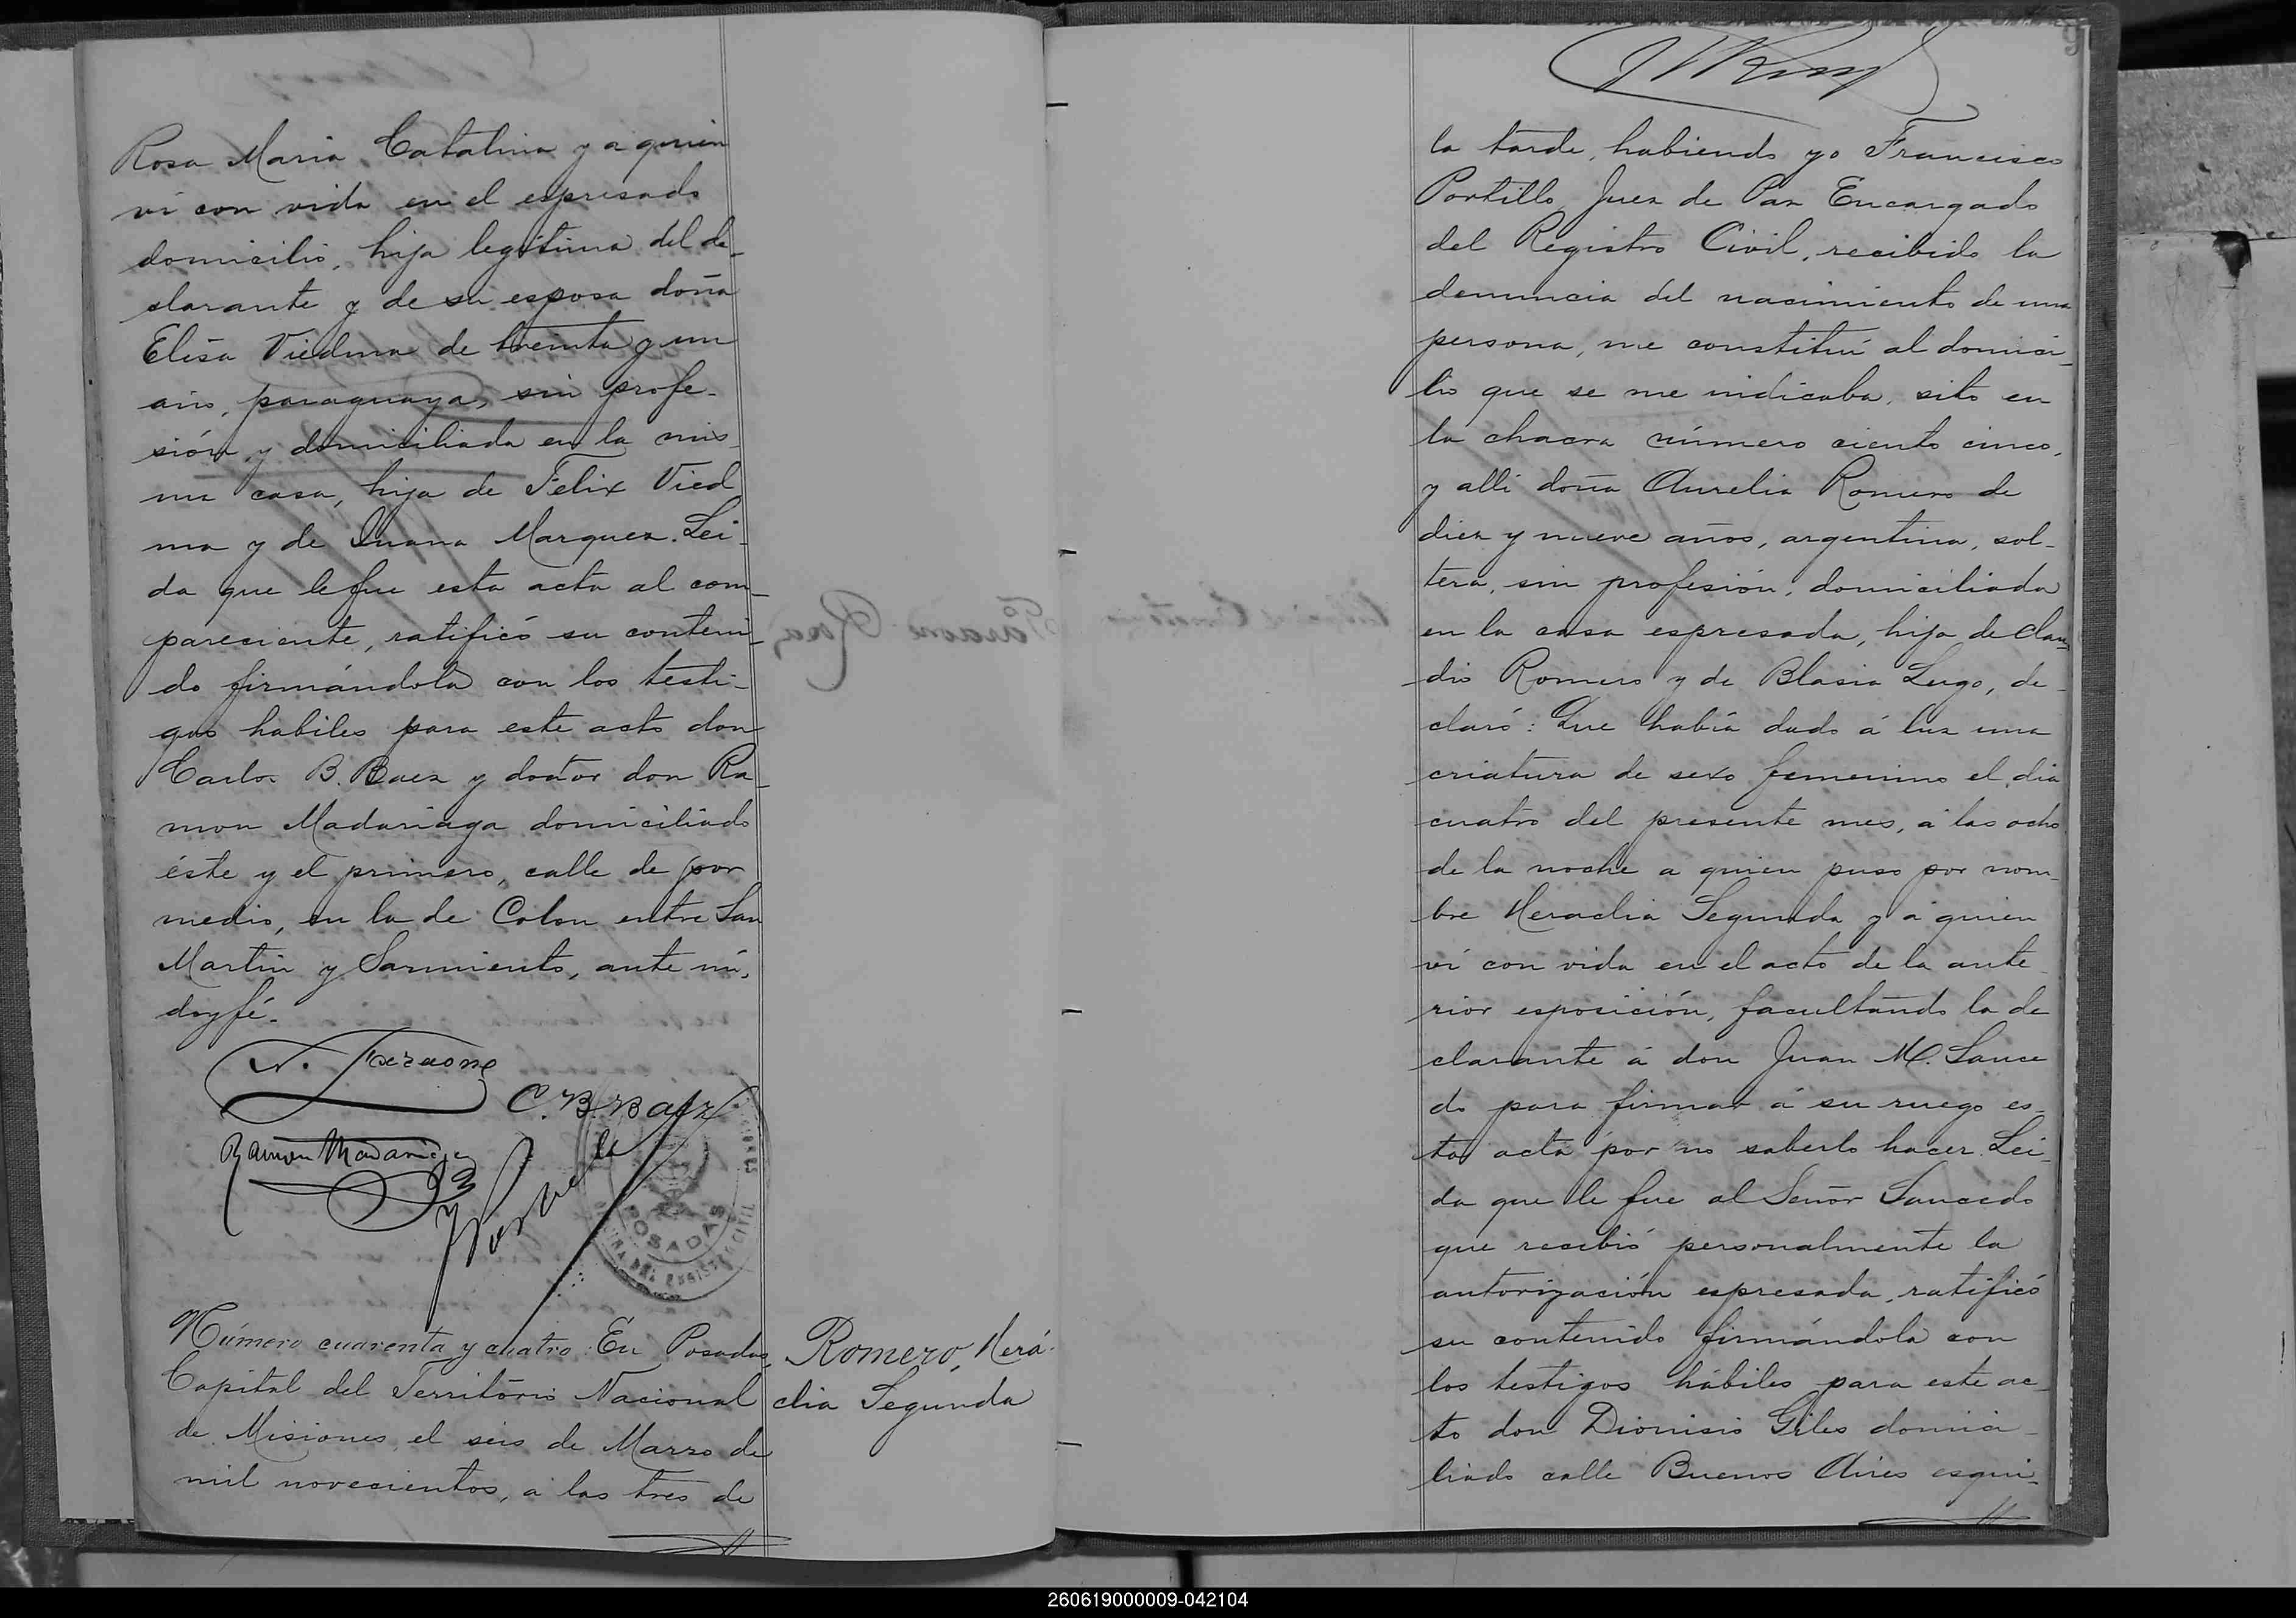 Rosa Maria Catalina y a quien
vi con vida en el espresado
domicilio, hija legitima del de-
clarante y de su esposa doña
Elisa Viedma de treinta y un
año, paraguaya, sin profe-
sión y domiciliada en la mis-
ma casa, hija de Felix Vied
ma y de Juana Marquez. Lei-
da que le fue esta acta al com-
pareciente, ratificó su conteni-
do firmándola con los testi-
gos habiles para este acto don
Carlos B. Baez y doctor don Ra-
mon Madariaga domiciliado
éste y el primero, calle de por
medio, en la de Colon entre San
Martin y Sarmiento, ante mi,
doy fé.
N. Faraone
C. B. Baez
Ramon Madariaga
POSADAS
Número cuarenta y cuatro. En Posadas,
Capital del Territorio Nacional
de Misiones, el seis de Marzo de
mil novecientos, a las tres de
Romero, Herá-
clia Segunda
la tarde, habiendo yo Francisco
Portillo, Juez de Paz Encargado
del Registro Civil, recibido la
denuncia del nacimiento de una
persona, me constituí al domici-
lio que se me indicaba, sito en
la chacra número ciento cinco,
y alli doña Aurelia Romero de
diez y nueve años, argentina, sol-
tera, sin profesión, domiciliada
en la casa espresada, hija de Clau-
dio Romero y de Blasia Lugo, de-
claró: Que había dado á luz una
criatura de sexo femenino el dia
cuatro del presente mes, a las ocho
de la noche a quien puso por nom-
bre Heraclia Segunda y a quien
vi con vida en el acto de la ante-
rior esposición, facultando la de
clarante á don Juan M. Sauce
do para firmar á su ruego es-
ta acta por no saberlo hacer. Lei-
da que le fue al Señor Saucedo
que recibió personalmente la
autorización espresada, ratificó
su contenido firmándola con
los testigos hábiles para este ac-
to don Dionisio Giles domici-
liado calle Buenos Aires esqui-
260619000009-042104